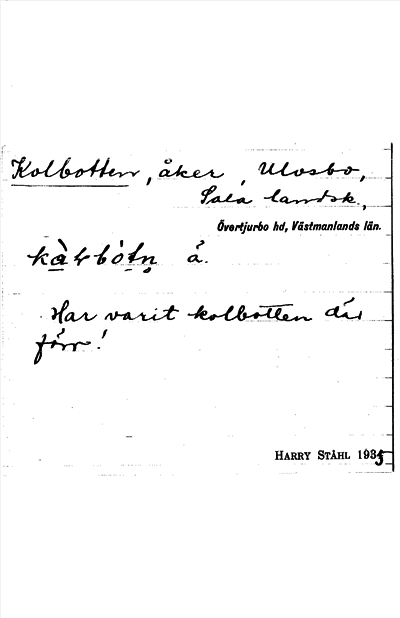 Kolbotten, åker, Ulvsbo,
Sala landsk.,
Övertjurbo hd, Västmanlands län.
å.
Har varit kolbotten där
förr!
HARRY STÅHL 1935